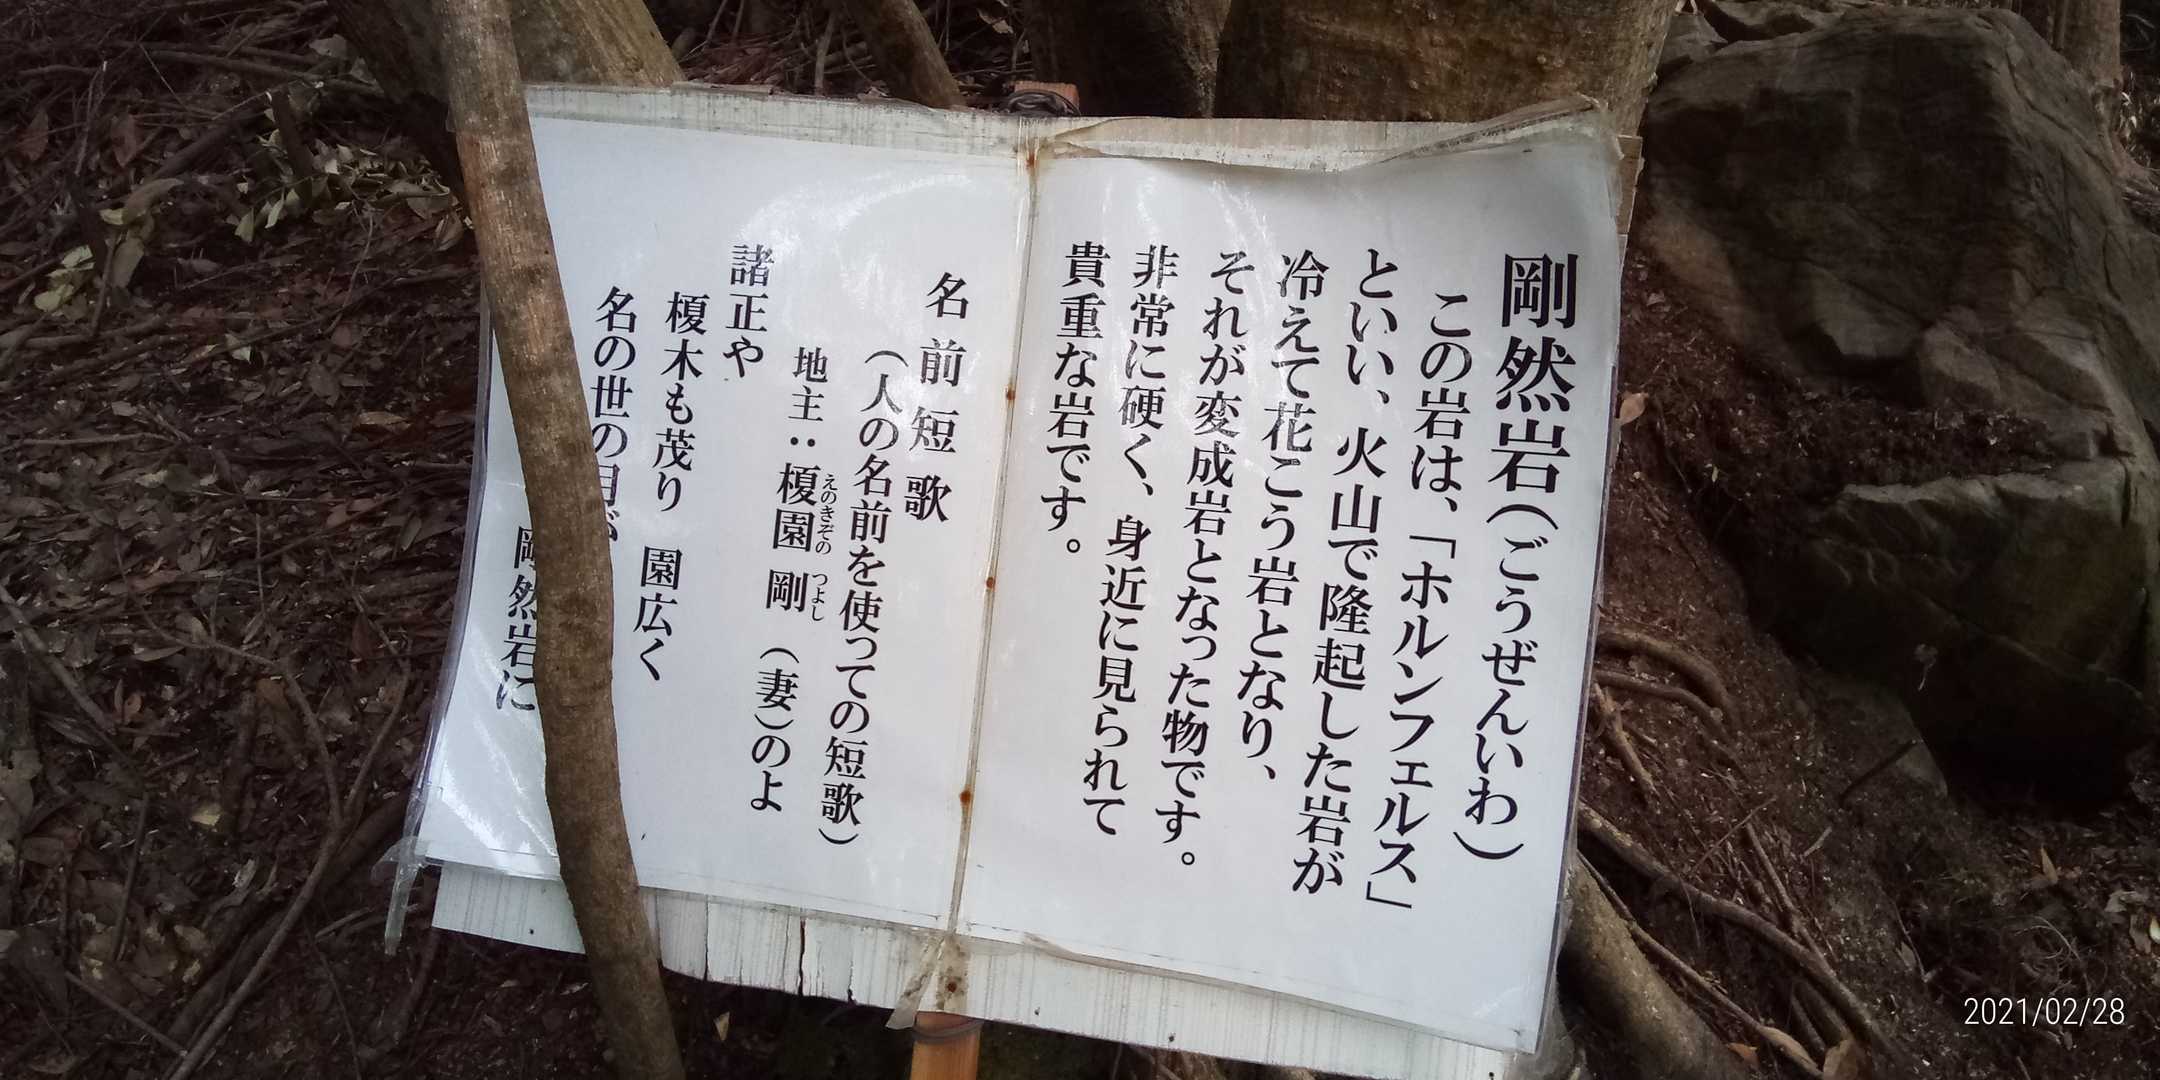 剛然岩(ごうぜんいわ)
この岩は、「ホルンフェルス」
といい、火山で隆起した岩が
冷えて花こう岩となり、
それが変成岩となった物です。
非常に硬く、身近に見られて
貴重な岩です。
名前短歌
(人の名前を使っての短歌)
地主:榎園 剛 (妻)のよ
えのきぞの つよし
諸正や
榎木も茂り 園広く
名の世の
剛然岩に
2021/02/28